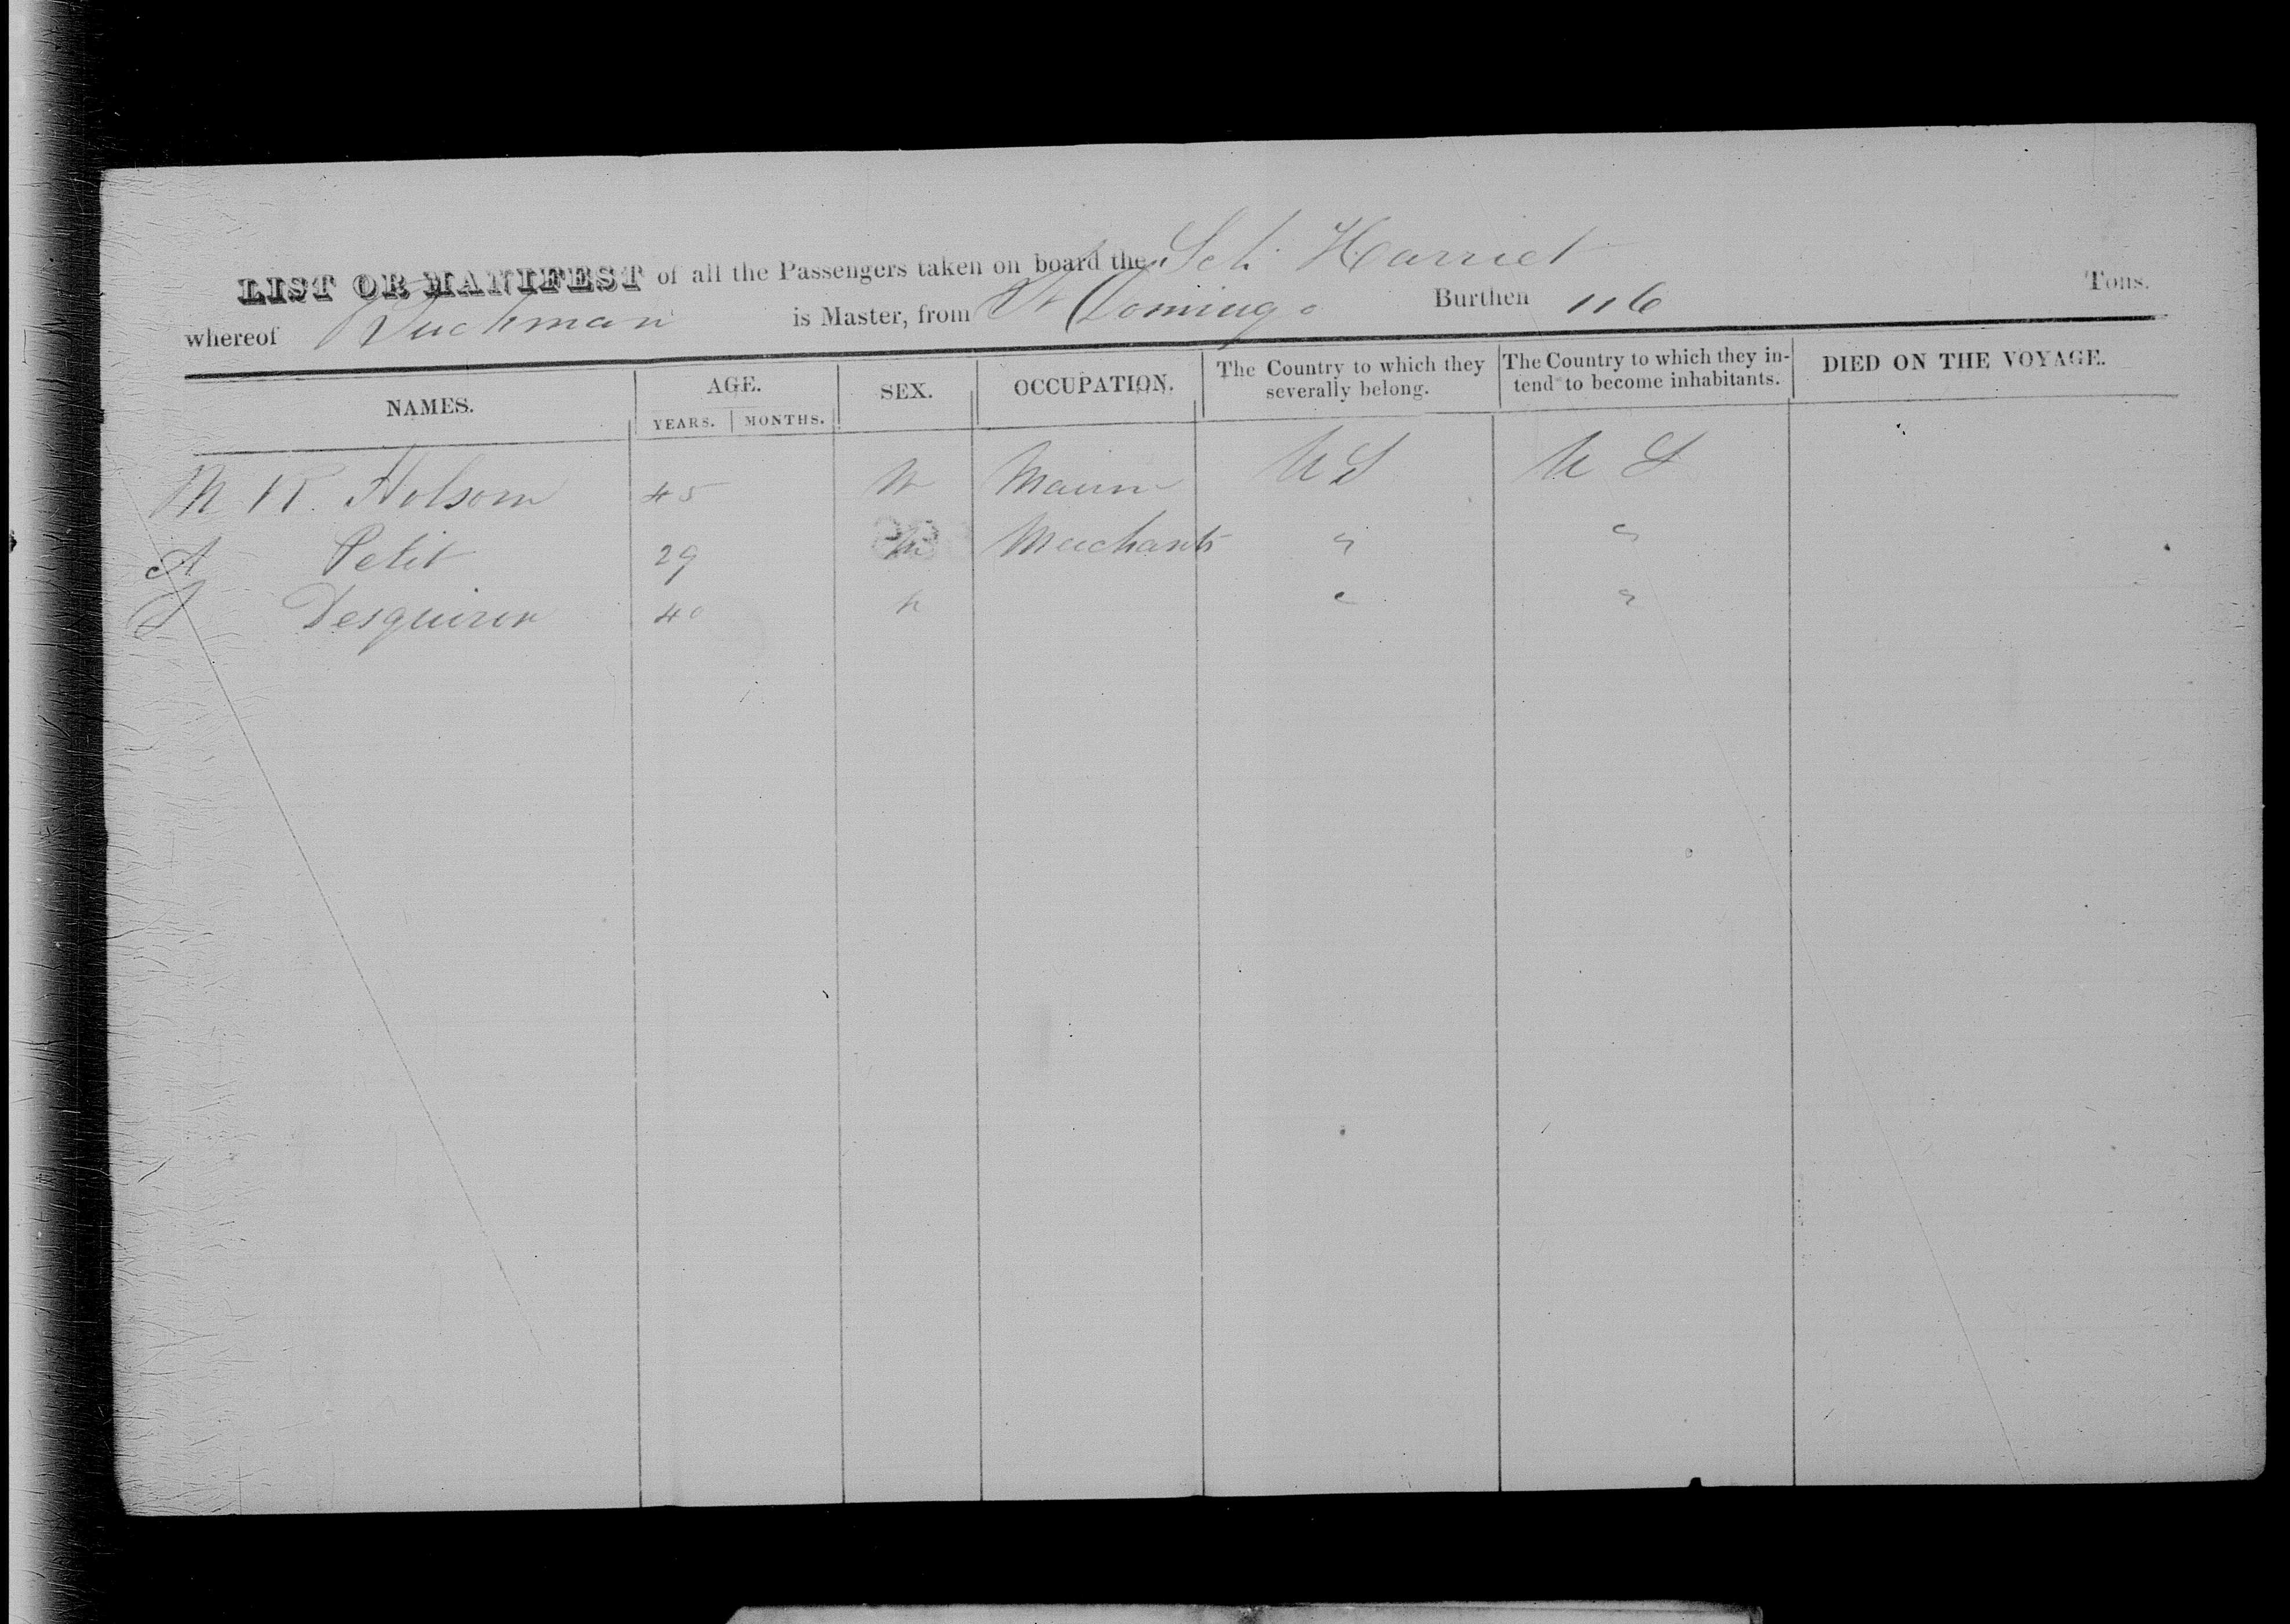 LIST OR MANIFEST of all the Passengers taken on board the Sch Harriet
whereof is Master, from St Domingo Burthen 116 Tons.
NAMES. AGE. SEX. OCCUPATION. The Country to which they severally belong. The Country to which they intend to become inhabitants. DIED ON THE VOYAGE.
YEARS. MONTHS.
M R. Holsom 45 M U S U S
A Petit 29 M Merchants " "
Desquiron 40 " "